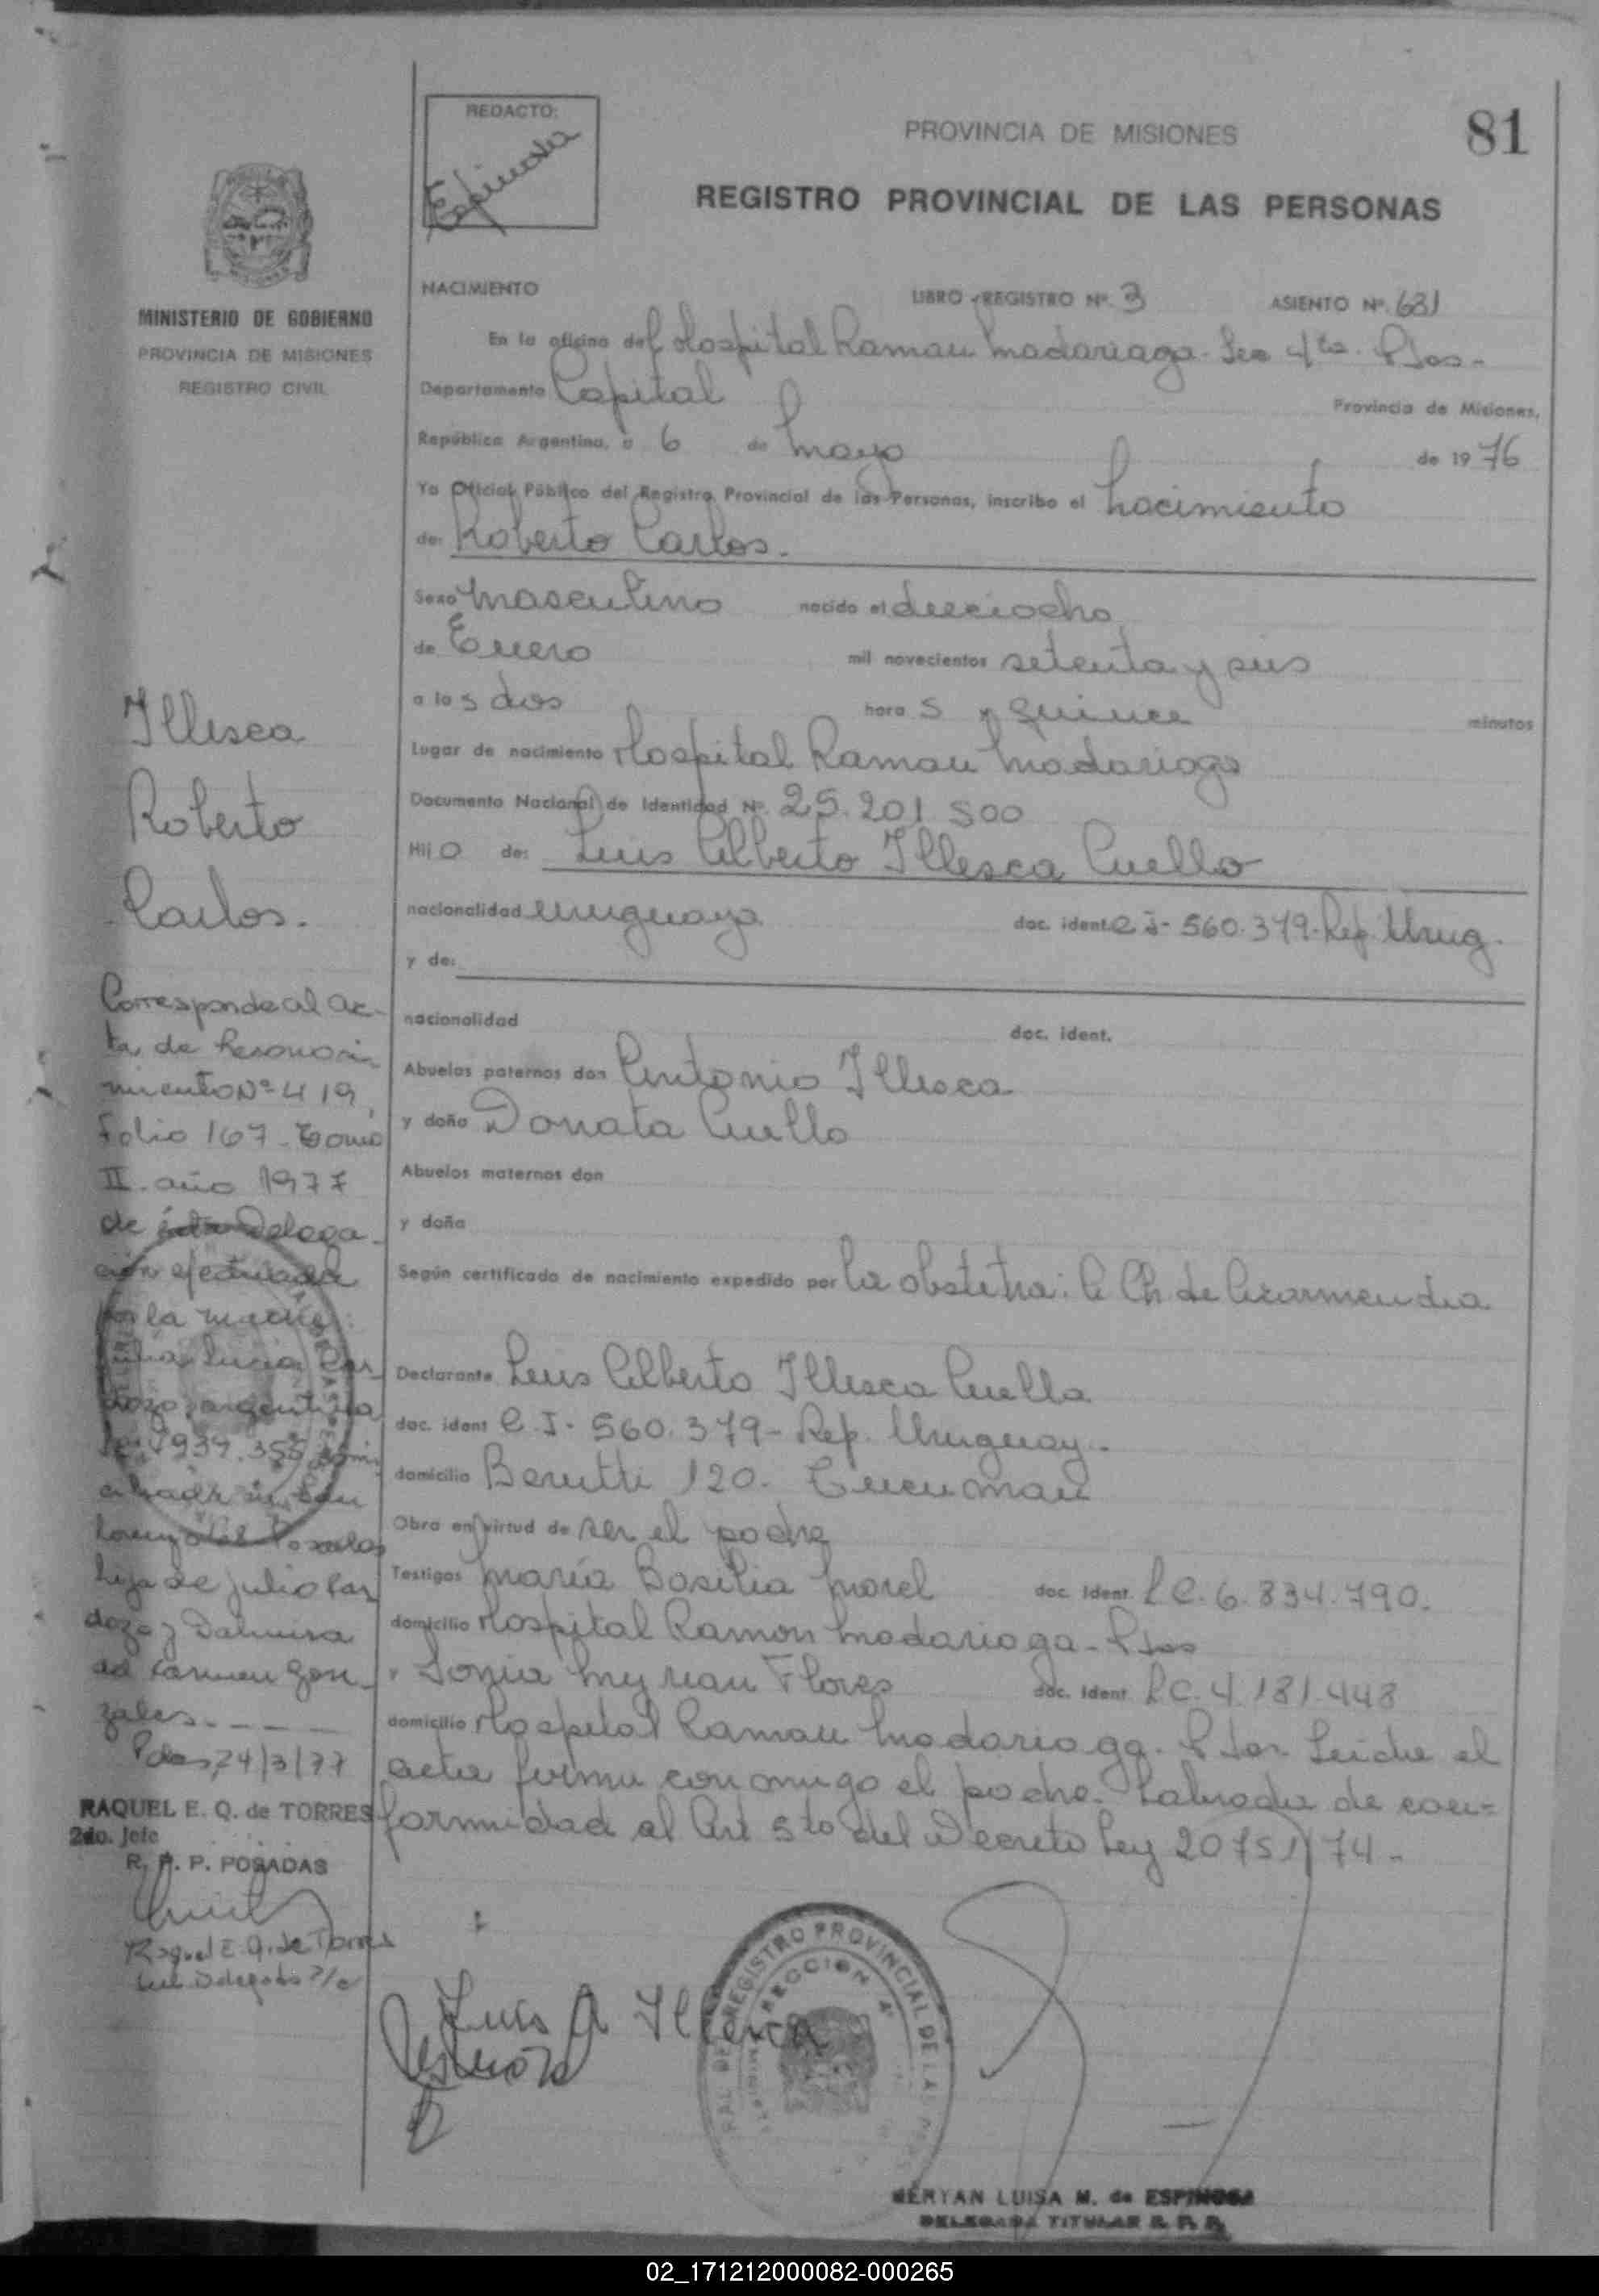 REDACTO:
Espinosa
PROVINCIA DE MISIONES
81
REGISTRO PROVINCIAL DE LAS PERSONAS
MINISTERIO DE GOBIERNO
PROVINCIA DE MISIONES
REGISTRO CIVIL
NACIMIENTO LIBRO - REGISTRO Nº. 3 ASIENTO Nº. 631
En la oficina del Hospital Ramon Madariaga - Sec 4ta. Pdas -
Departamento Capital Provincia de Misiones,
República Argentina, a 6 de Mayo de 1976
Yo Oficial Público del Registro Provincial de las Personas, inscribo el Nacimiento
de: Roberto Carlos.
Sexo Masculino nacido el dieciocho
de Enero mil novecientos setenta y seis
a las dos horas y quince minutos
Lugar de nacimiento Hospital Ramon Madariaga
Documento Nacional de Identidad Nº. 25.201.500
Hijo de: Luis Alberto Illesca Cuello
nacionalidad Uruguaya doc. ident. C I - 560.379 - Rep. Urug.
y de:
nacionalidad doc. ident.
Abuelos paternos don Antonio Illesca
y doña Donata Cuello
Abuelos maternos don
y doña
Según certificado de nacimiento expedido por la obstetra: C Ch de Azarmendia
Declarante Luis Alberto Illesca Cuello
doc. ident C.I - 560.379 - Rep. Uruguay.
domicilio Berutti 120. Tucuman
Obra en virtud de ser el padre
Testigos Maria Basilia Morel doc. Ident. LC. 6.834.790.
domicilio Hospital Ramon Madariaga - Pdas
y Sonia Myrian Flores doc. Ident LC. 4.181.448
domicilio Hospital Ramon Madariaga. Pdas Leida el
acta firma conmigo el padre. Labrada de con=
formidad al Art 5to del Decreto Ley 20751/74 -
Illesca
Roberto
Carlos.
Corresponde al ac-
ta de Reconoci-
miento Nº 419,
folio 167 - Tomo
II. año 1977
de esta Delega-
ción efectuada
por la madre:
Julia Lucia Car
dozo, argentina
4.937.355 domi
ciliada en San
Lorenzo Posadas
hija de Julio Car
dozo y Dalmira
del Carmen Gon-
zales. - - - -
Pdas, 24/3/77
RAQUEL E. Q. de TORRES
2do. Jefe
R. P. P. POSADAS
Raquel E. Q. de Torres
Delegado
Luis A Illesca
REGISTRO PROVINCIAL DE LAS
SECCION 4ª
MERYAN LUISA M. de ESPINOSA
DELEGADA TITULAR R. P. P.
02_171212000082-000265